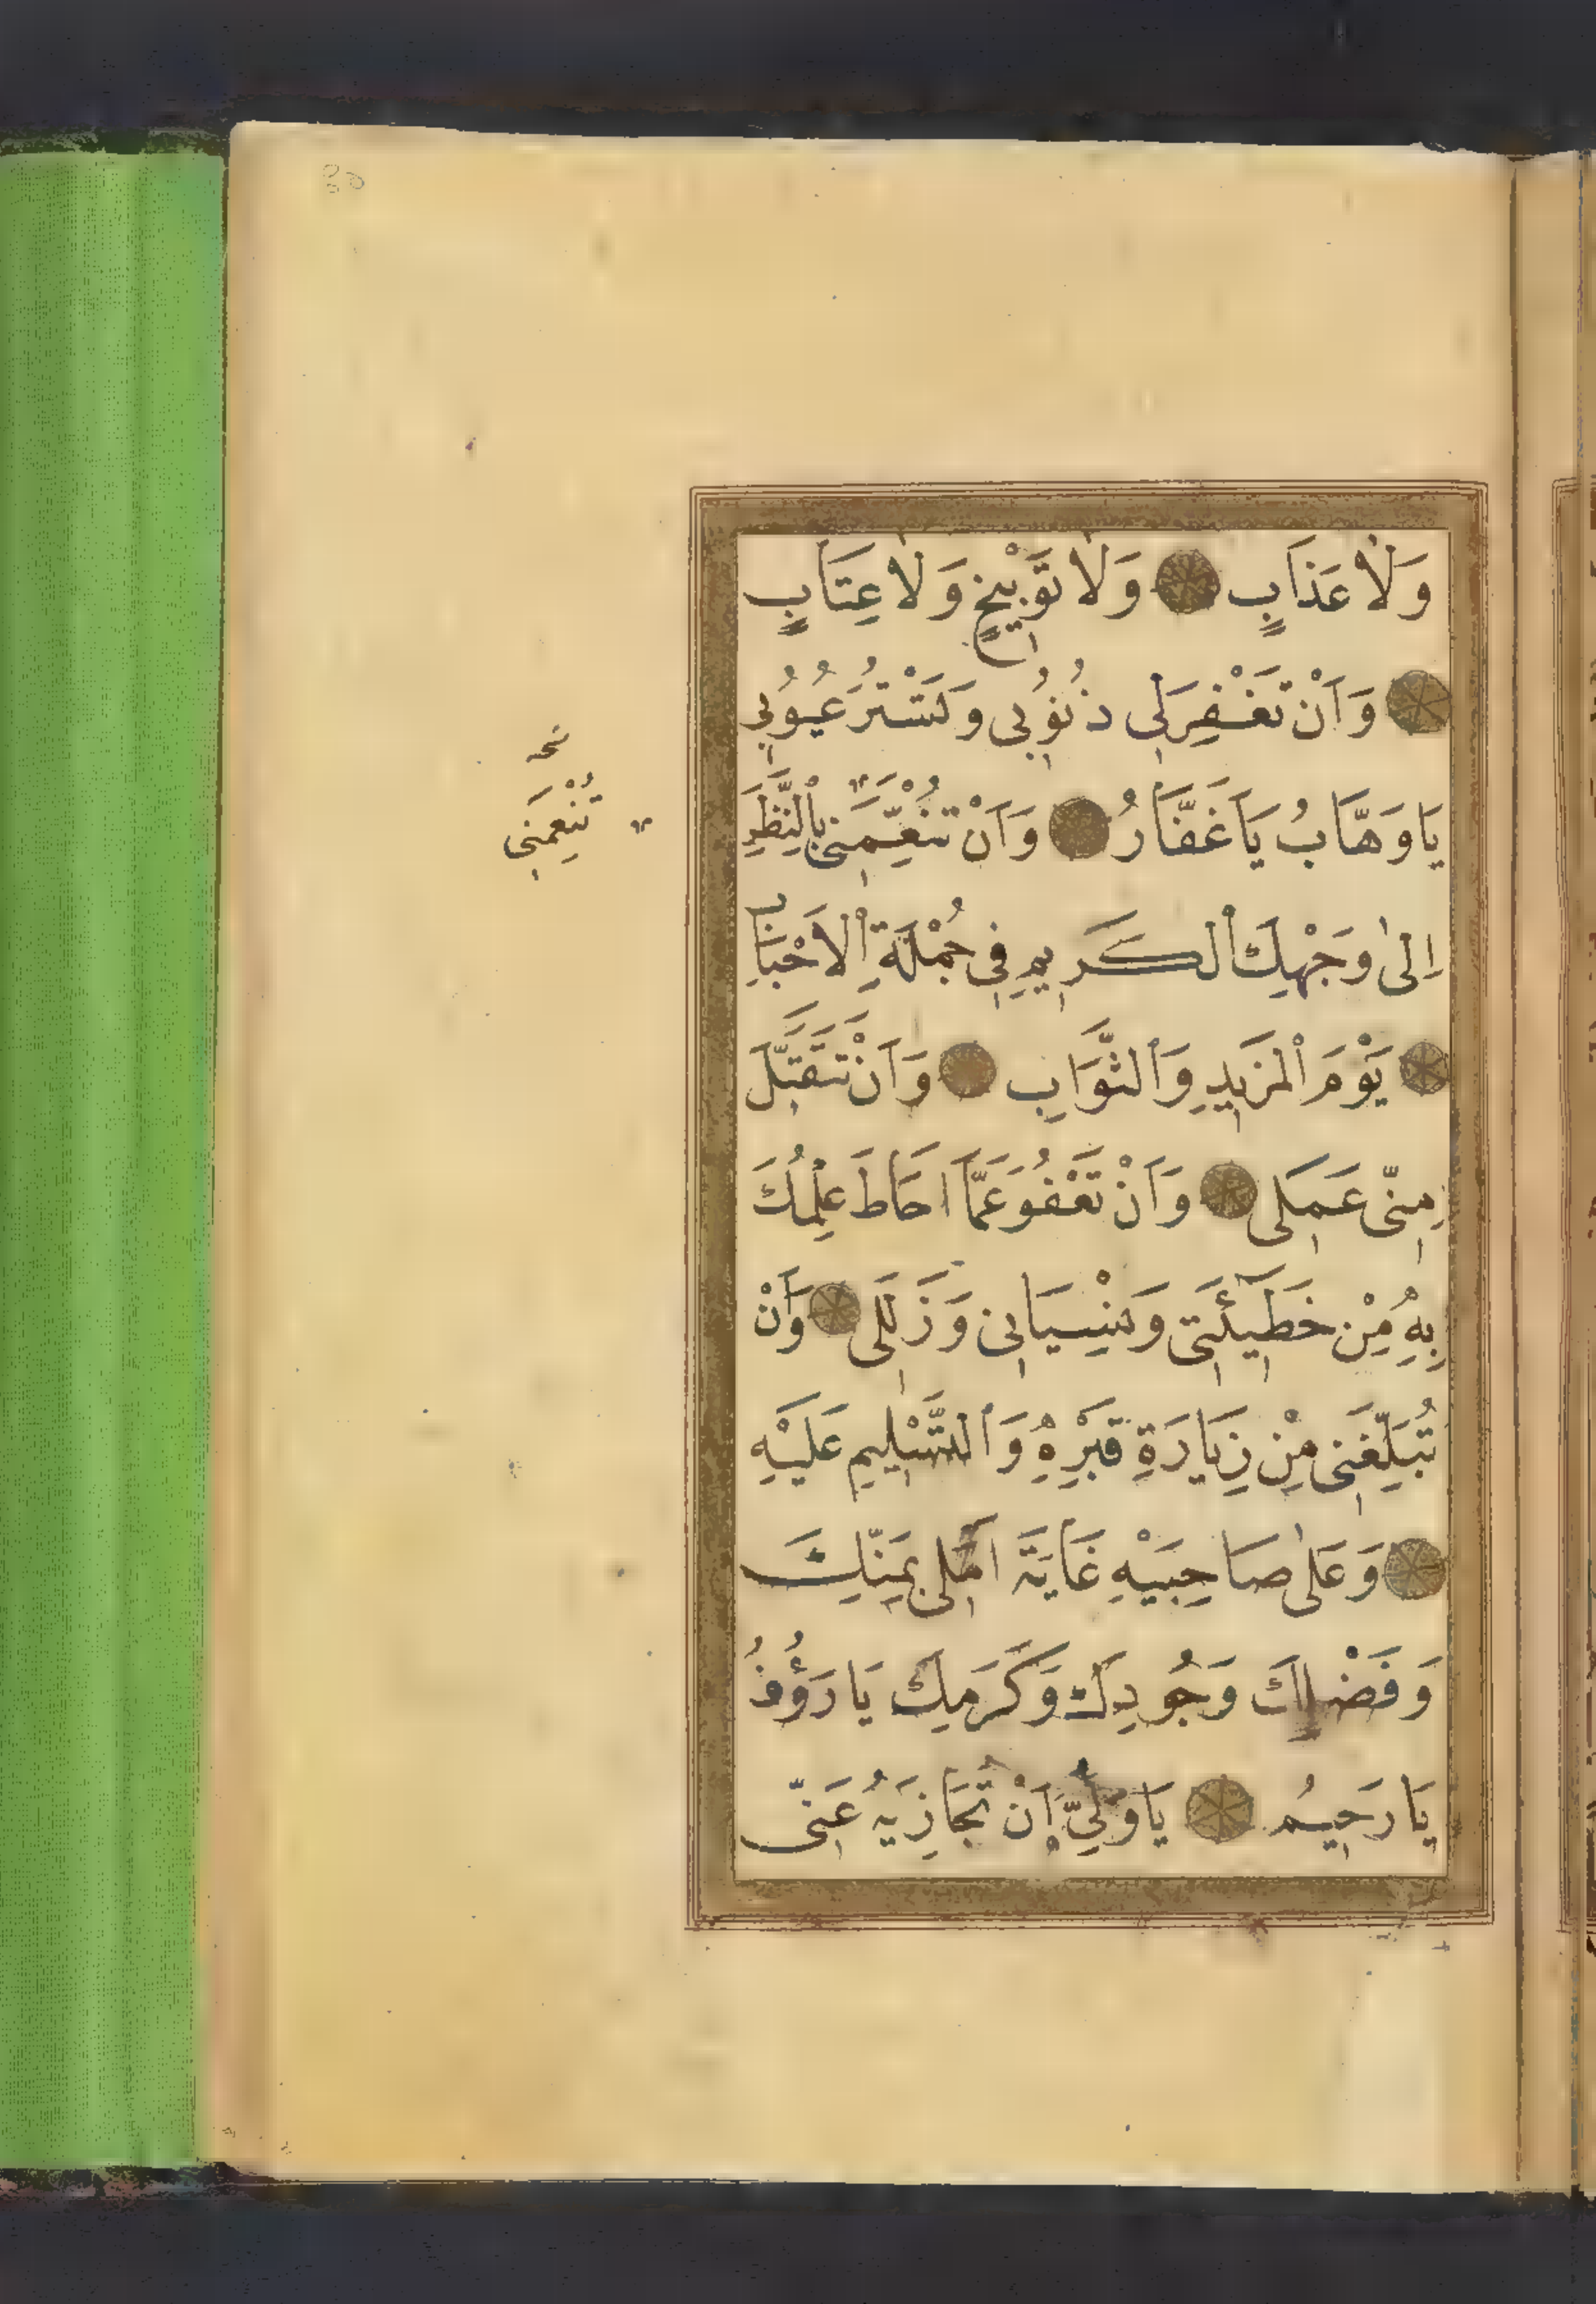 وَلَا عَذَابٍ وَلَا تَوْبِيْخٍ وَلَا عِتَابٍ
وَاَنْ تَغْفِرَلِي ذُنُوُبِي وَتَسْتُرَ عُيُوُبِي
يَا وَهَّابُ يَا غَفَّارُ وَاَنْ تُنْعِّمَنِي بِالنَّظَرِ
اِلىٰ وَجْهِكَ الْكَرِيمِ فِي جُمْلَةِ الْاَحْبَابِ
يَوْمَ الْمَزِيدِ وَالثَّوَابِ وَاَنْ تَتَقَبَّلَ
مِنِّي عَمَلِي وَاَنْ تَعْفُوَ عَمَّا اَحَاطَ عِلْمُكَ
بِهِ مِنْ خَطِيئَتِي وَنِسْيَانِي وَزَلَلِي وَاَنْ
تُبَلِّغَنِي مِنْ زِيَارَةِ قَبْرِهِ وَالتَّسْلِيمِ عَلَيْهِ
وَعَلىٰ صَاحِبَيْهِ غَايَةَ اَمَلِي بِمَنِّكَ
وَفَضْلِكَ وَجُودِكَ وَكَرَمِكَ يَا رَؤُفُ
يَا رَحِيمُ يَا وَلِيُّ اَنْ تُجَازِيَهُ عَنِّي
نخه
تُنْعِمَنِي